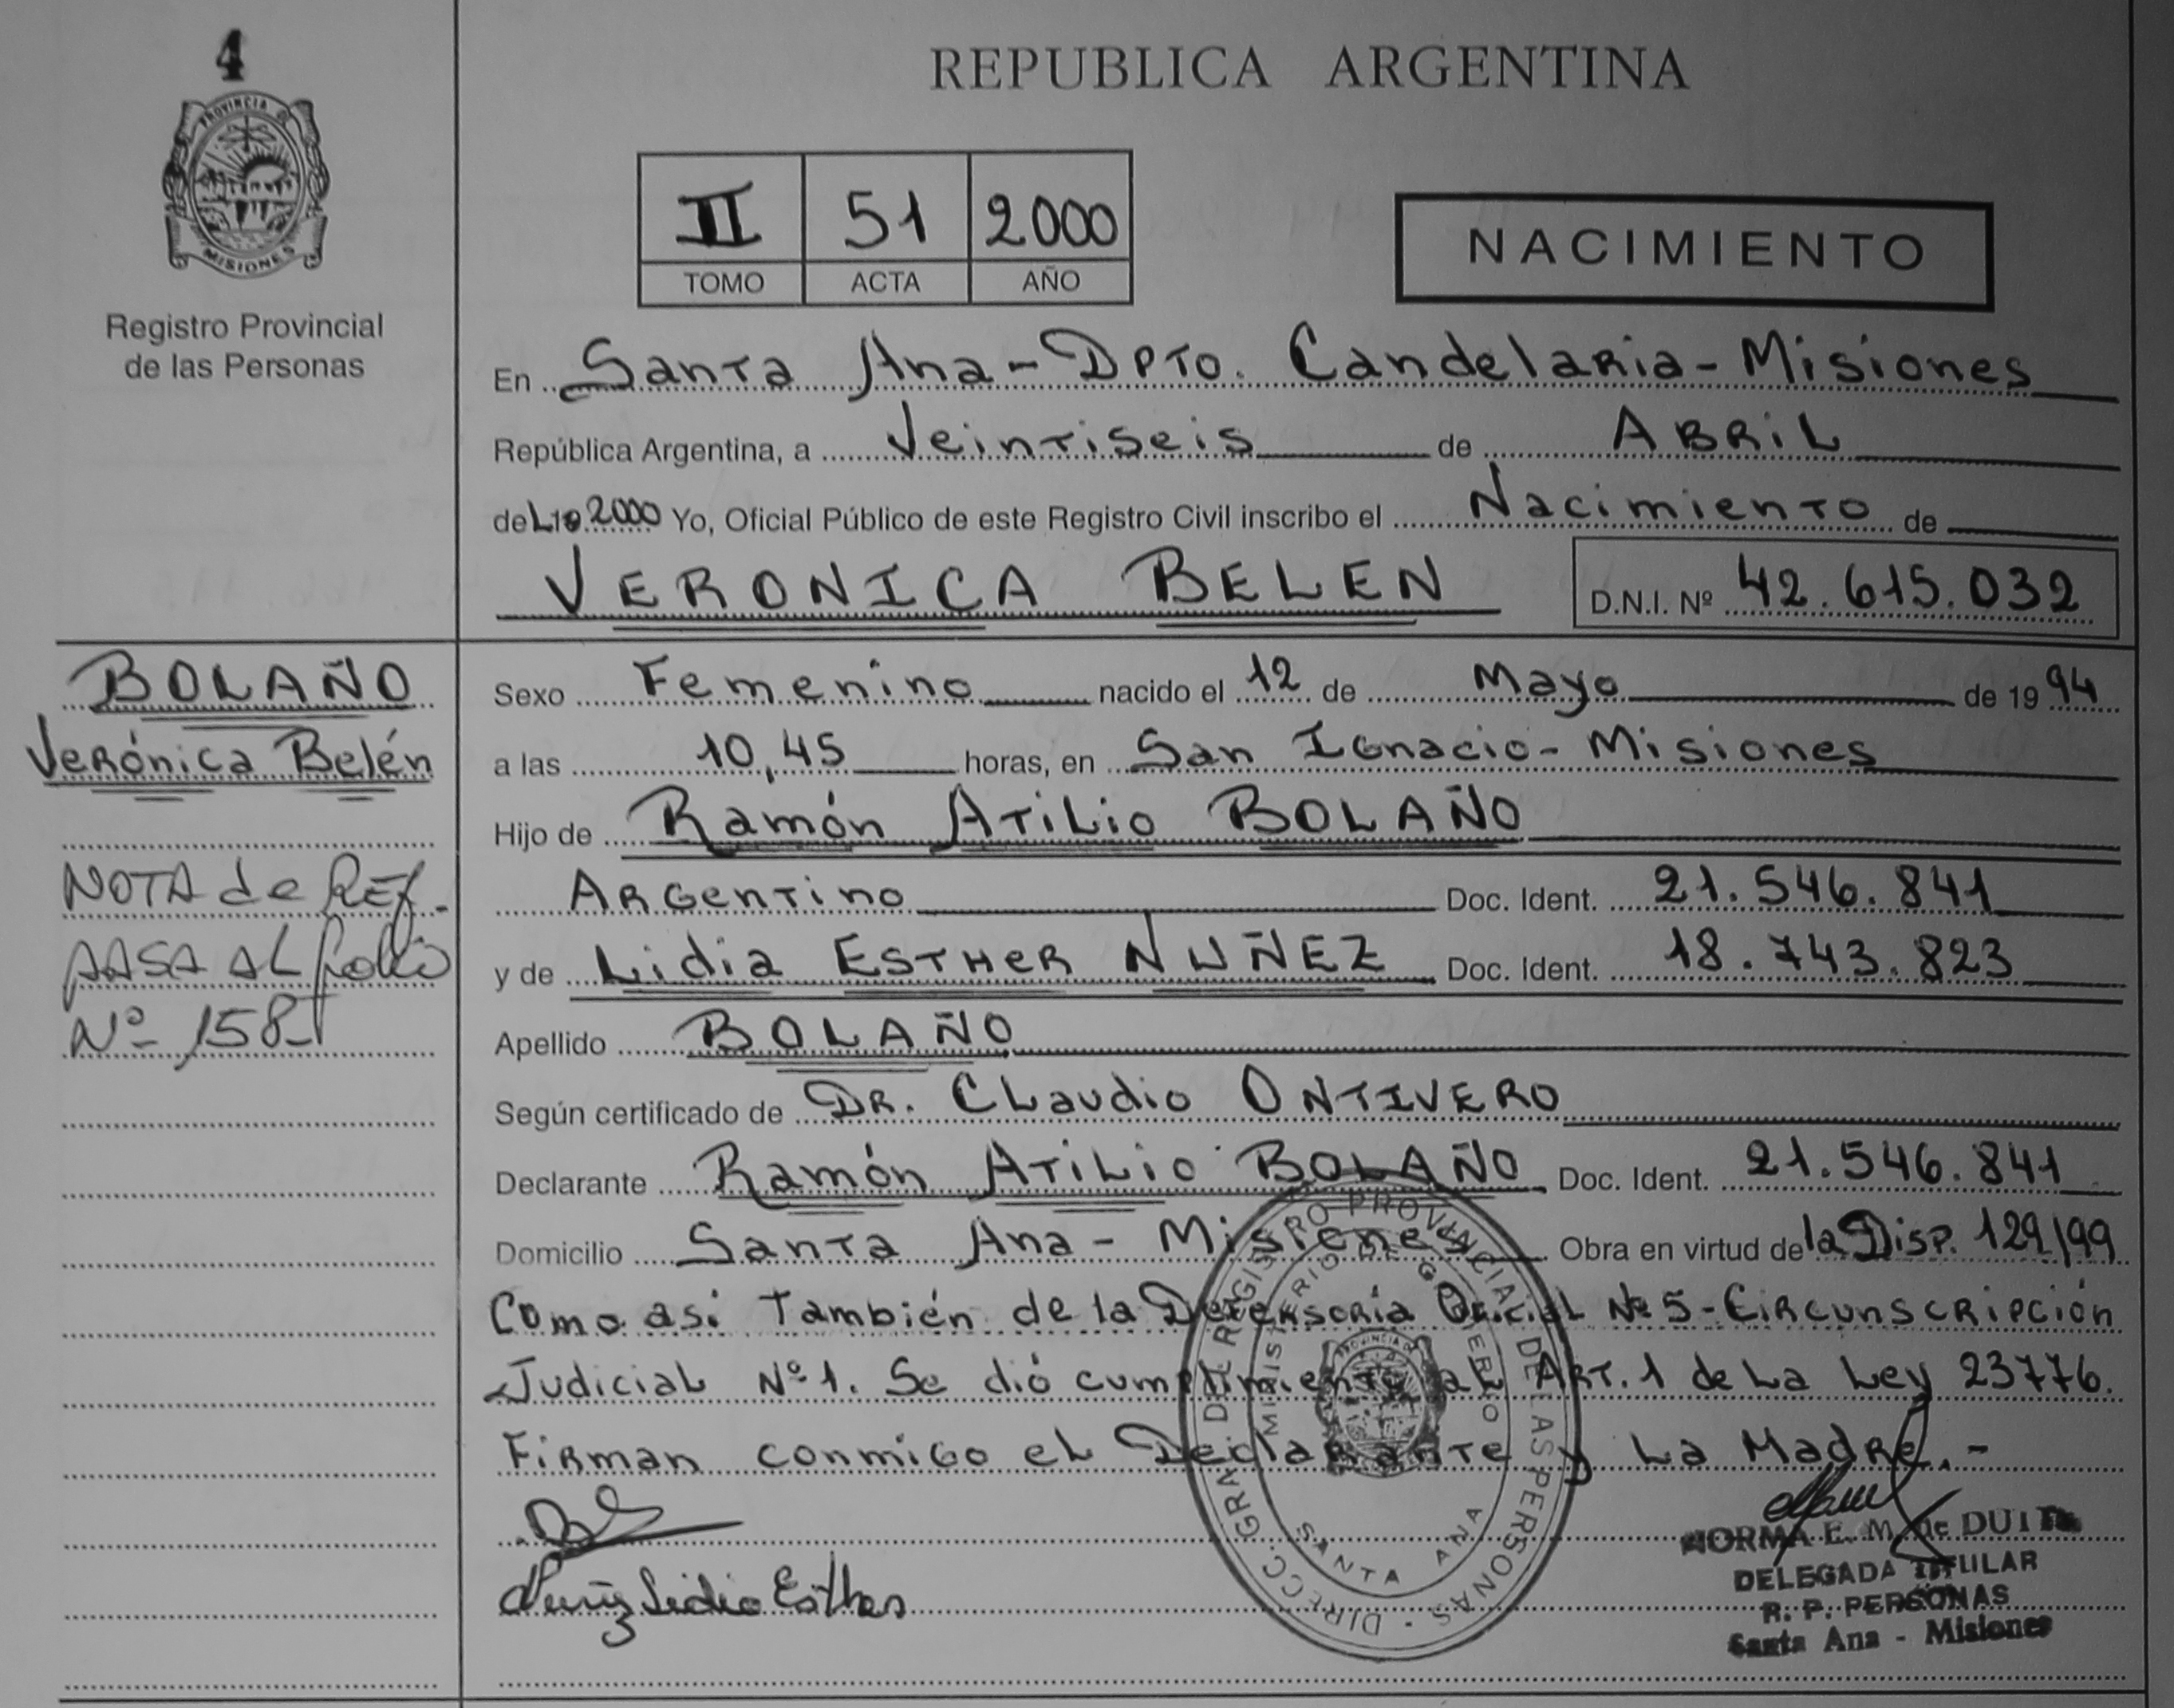 4
PROVINCIA DE
MISIONES
Registro Provincial
de las Personas
REPUBLICA ARGENTINA
II 51 2000
TOMO ACTA AÑO
NACIMIENTO
En Santa Ana - Dpto. Candelaria - Misiones
República Argentina, a Veintiseis de ABRIL
del 19 2000 Yo, Oficial Público de este Registro Civil inscribo el Nacimiento de
VERONICA BELEN D.N.I. Nº 42.615.032
BOLAÑO
Verónica Belén
NOTA de REf.
PASA AL folio
Nº 158
Sexo Femenino nacido el 12 de Mayo de 1994
a las 10,45 horas, en San Ignacio - Misiones
Hijo de Ramón Atilio BOLAÑO
Argentino Doc. Ident. 21.546.841
y de Lidia ESTHER NUÑEZ Doc. Ident. 18.743.823
Apellido BOLAÑO
Según certificado de DR. Claudio ONTIVERO
Declarante Ramón Atilio BOLAÑO Doc. Ident. 21.546.841
Domicilio Santa Ana - Misiones Obra en virtud de la Disp. 129/99
Como asi también de la Defensoría Oficial Nº 5 - Circunscripción
Judicial Nº 1. Se dió cumplimiento al Art. 1 de La Ley 23776.
Firman conmigo el Declarante y La Madre.-
Nuñez Lidia Esther
DIRECC. GRAL. DEL REGISTRO PROVINCIAL DE LAS PERSONAS
MINISTERIO DE GOBIERNO
SANTA ANA
NORMA E. M. de
DELEGADA TITULAR
R. P. PERSONAS
Santa Ana - Misiones